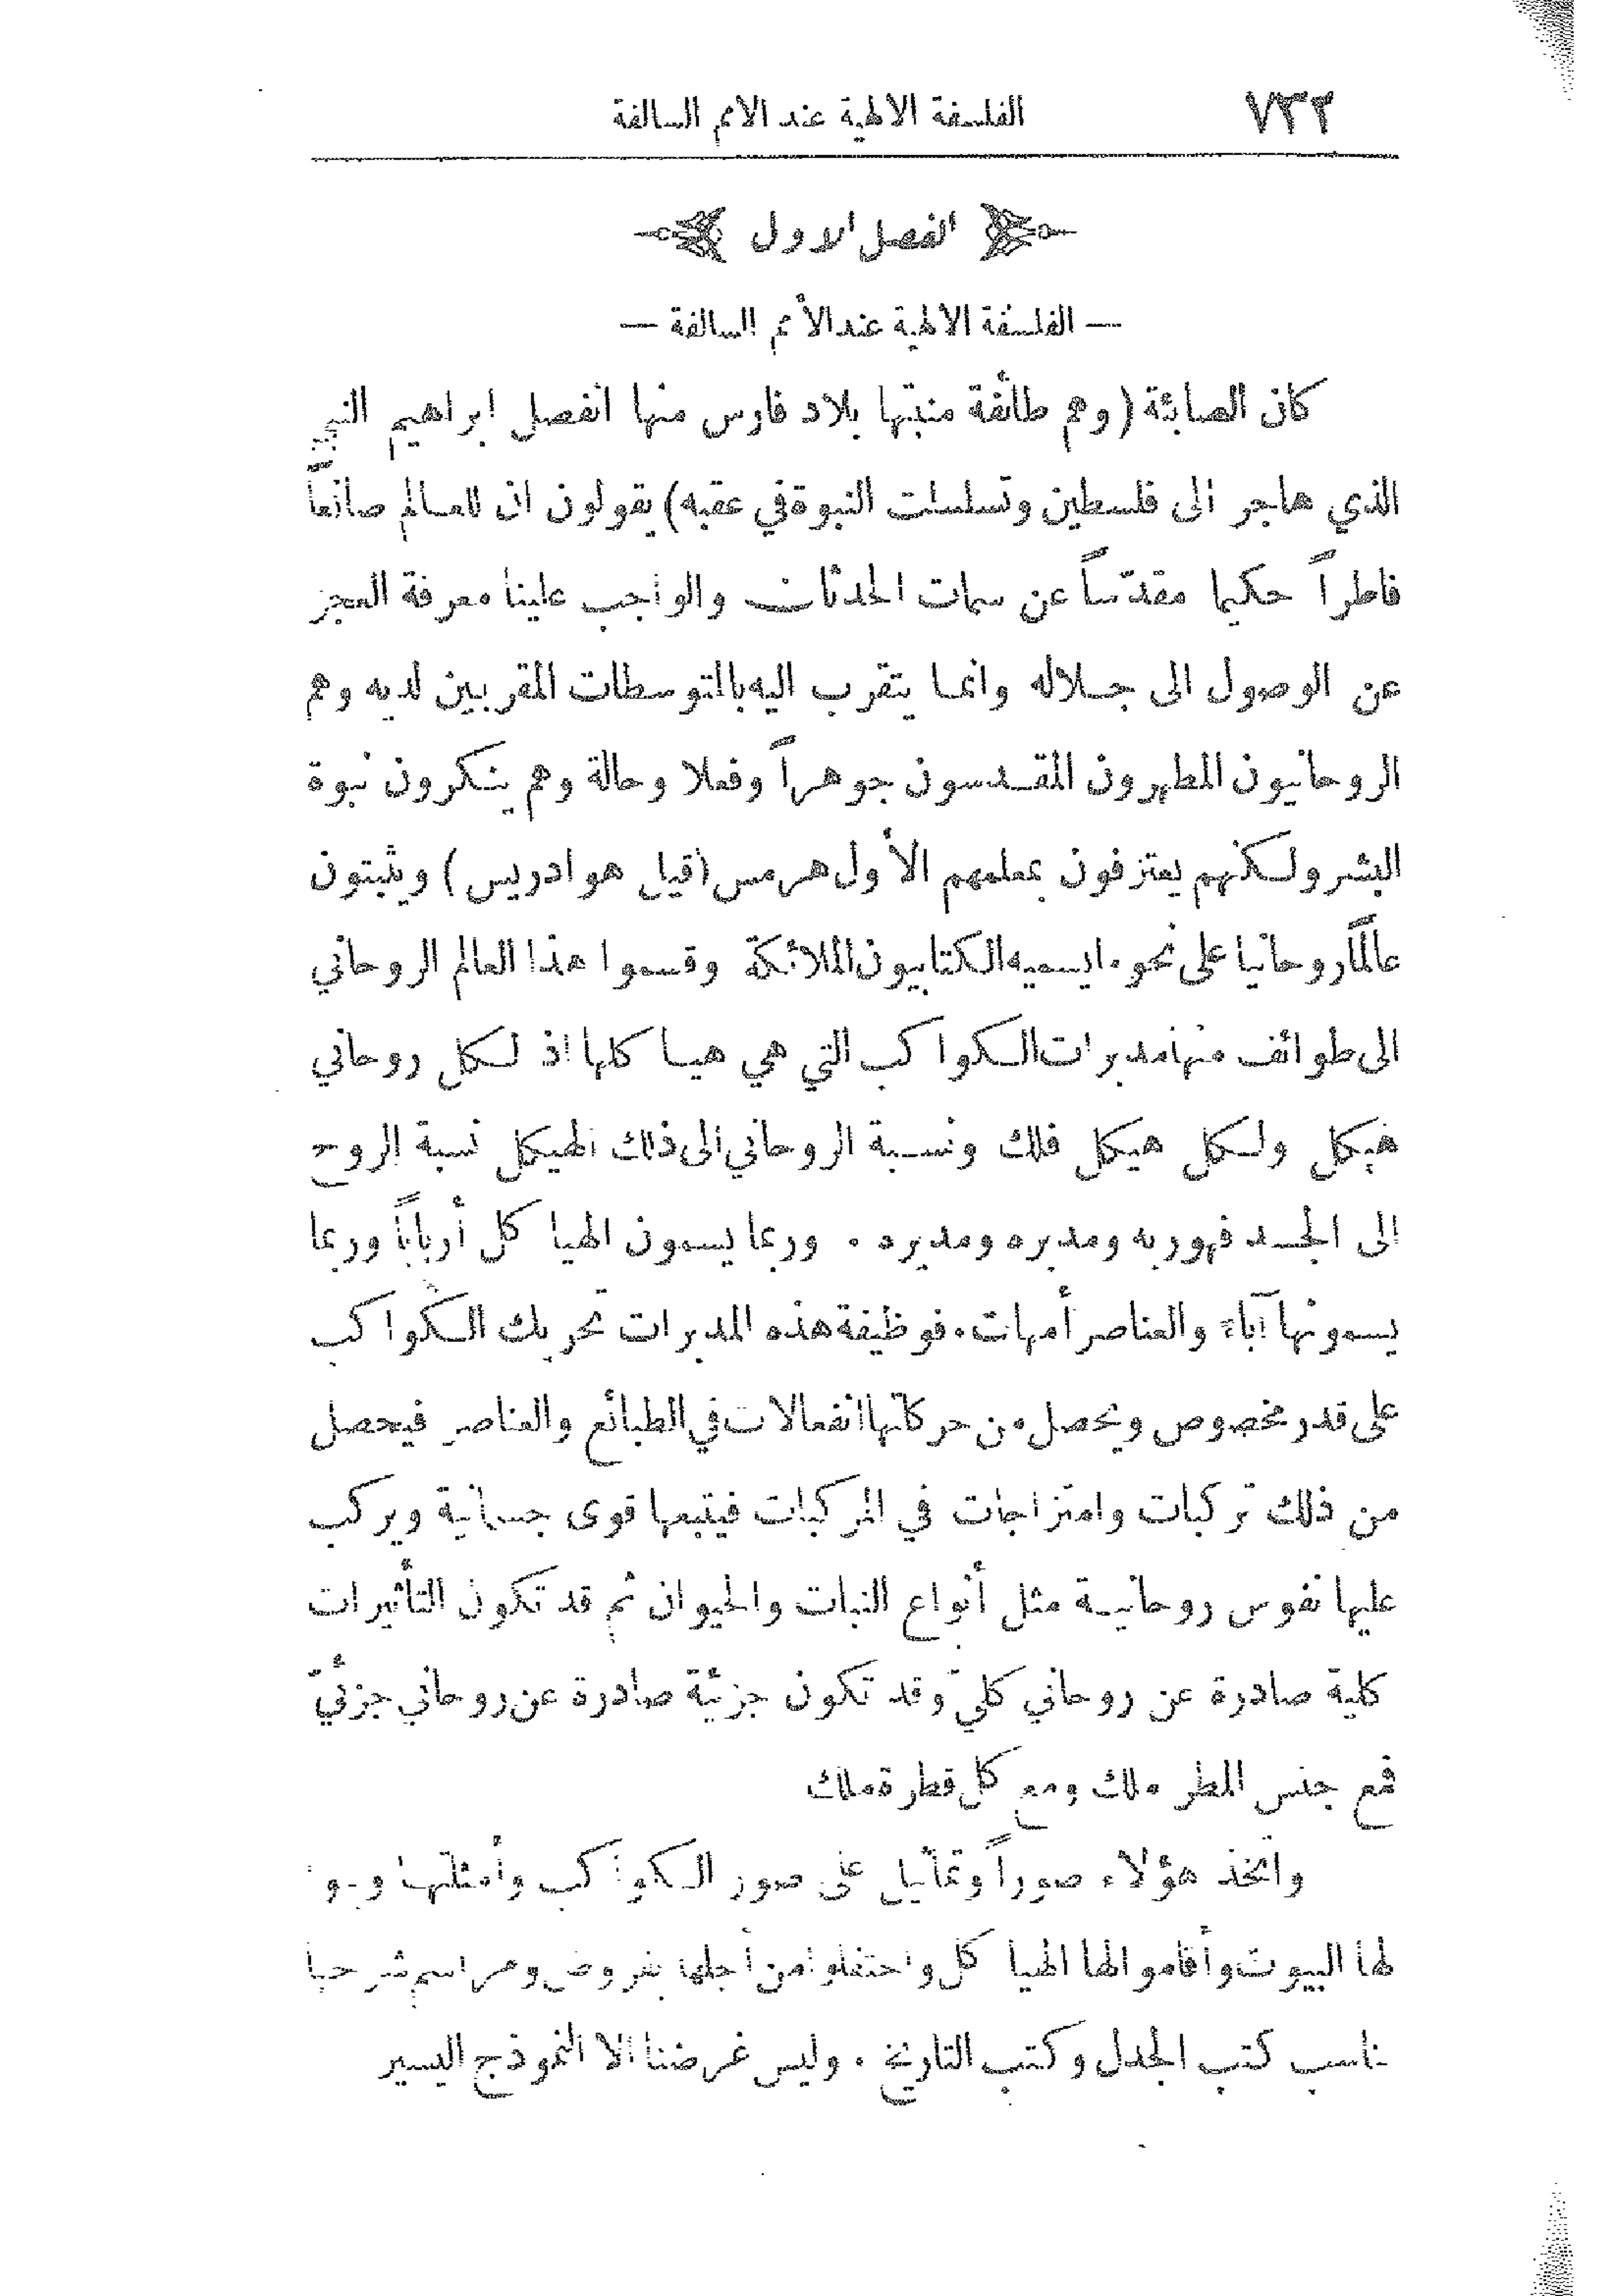 ٧٣٢ الفلسفة الالهية عند الامم السالفة
الفصل الاول
— الفلسفة الالهية عند الأمم السالفة —
كان الصابئة (وهم طائفة منبتها بلاد فارس منها انفصل ابراهيم النبي
الذي هاجر الى فلسطين وتسلسلت النبوة في عقبه) يقولون ان للعالم صانعاً
فاطراً حكيما مقدّساً عن سمات الحدثان والواجب علينا معرفة العجز
عن الوصول الى جلاله وانما يتقرب اليه بالتوسطات المقربين لديه وهم
الروحانيون المطهرون المقدسون جوهراً وفعلا وحالة وهم ينكرون نبوة
البشر ولكنهم يعترفون بمعلمهم الأول هرمس (قيل هو ادريس) ويثبتون
عالماً روحانيا على نحو ما يسميه الكتابيون الملائكة وقسموا هذا العالم الروحاني
الى طوائف منها مدبرات الكواكب التي هي هياكلها اذ لكل روحاني
هيكل ولكل هيكل فلك ونسبة الروحاني الى ذلك الهيكل نسبة الروح
الى الجسد فهو ربه ومدبره ومديره . وربما يسمون الهياكل أرباباً وربما
يسمونها آباء والعناصر أمهات . فوظيفة هذه المدبرات تحريك الكواكب
على قدر مخصوص ويحصل من حركاتها انفعالات في الطبائع والعناصر فيحصل
من ذلك تركبات وامتزاجات في المركبات فيتبعها قوى جسمانية ويركب
عليها نفوس روحانية مثل أنواع النبات والحيوان ثم قد تكون التأثيرات
كلية صادرة عن روحاني كليّ وقد تكون جزئية صادرة عن روحاني جزئيّ
فمع جنس المطر ملك ومع كل قطرة ملك
واتخذ هؤلاء صوراً وتماثيل على صور الكواكب وأمثلتها
لها البيوت وأقاموا لها الهياكل واحتفلوا من أجلها بفروض ومراسم
كتب الجدل وكتب التاريخ . وليس غرضنا الا النموذج اليسير